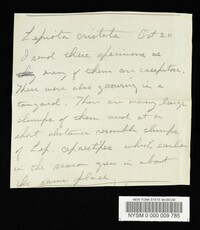 Lepiota cristata Oct 20
I send these specimens as
many of them are caespitose.
There were also growing in a
tan yard. There are many large
clumps of them and at a
short distance resemble clumps
of Cop. which earlier
in the season grew in about
the same place.
NEW YORK STATE MUSEUM
NYSM 0 000 009 785